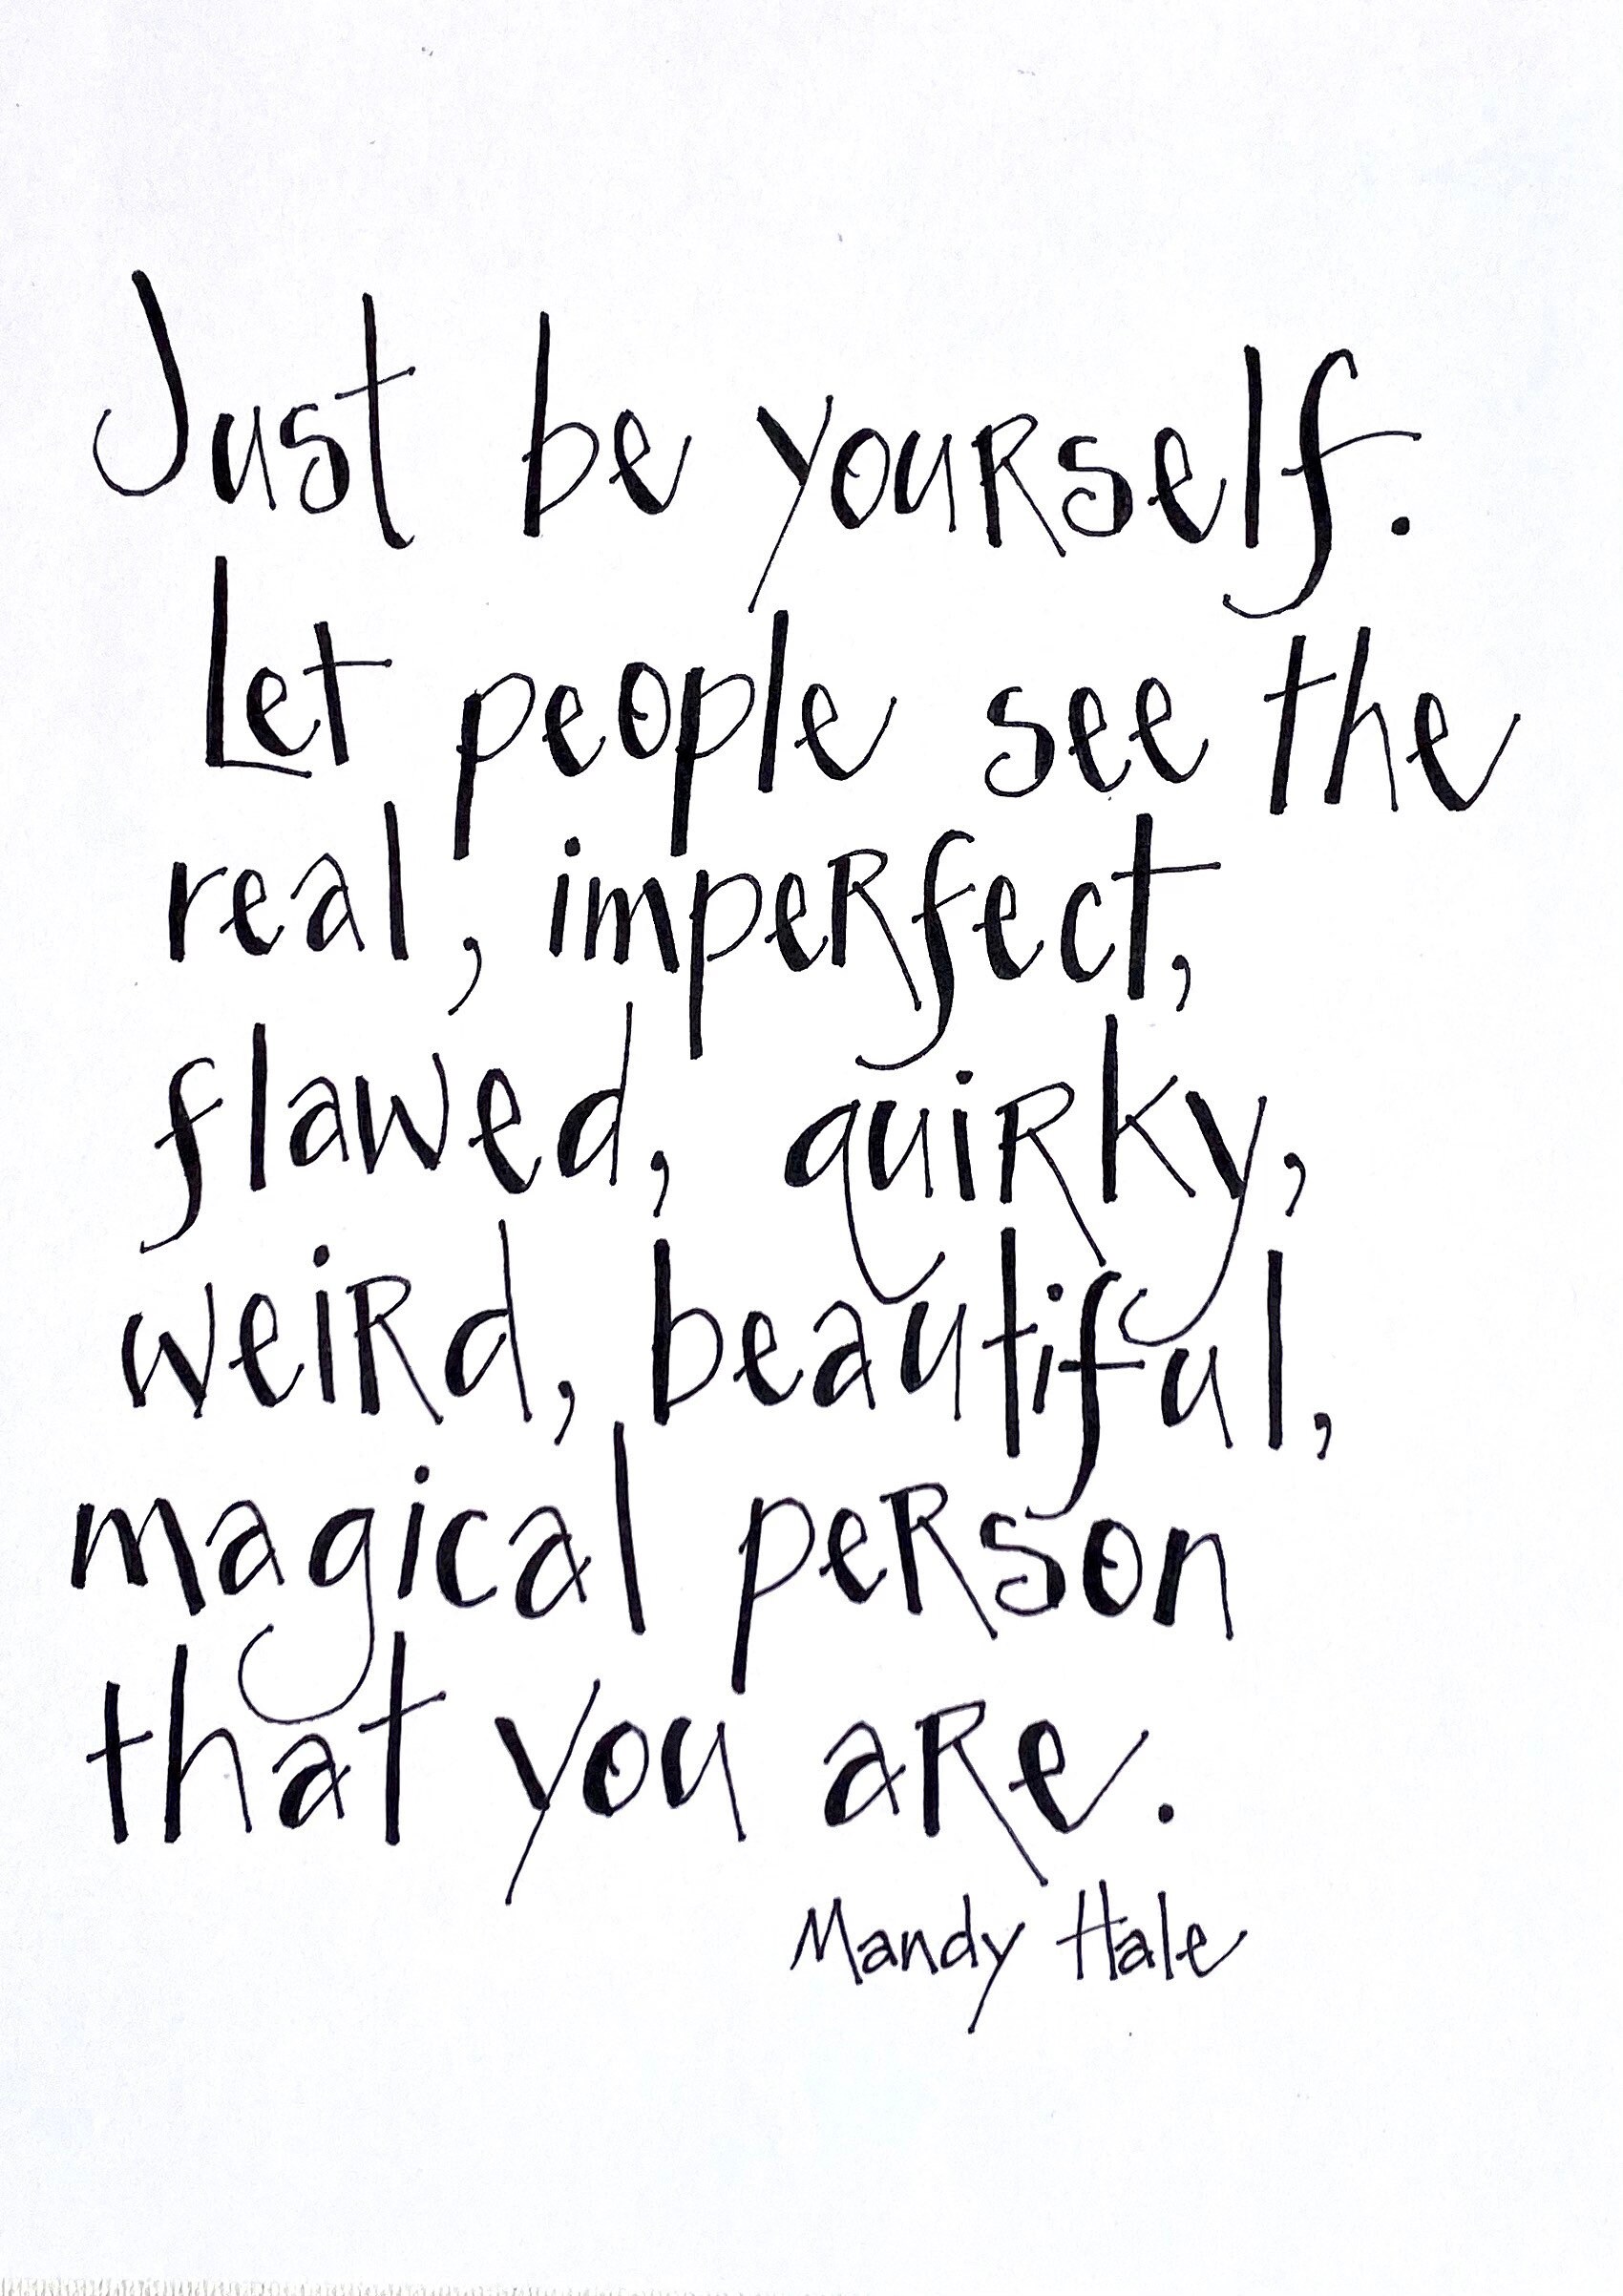 Just be yourself.
Let people see the
real, imperfect,
flawed, quirky,
weird, beautiful,
magical person
that you are.
Mandy Hale